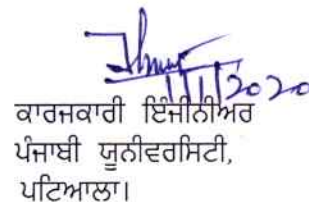 1/1/2020
ਕਾਰਜਕਾਰੀ ਇੰਜੀਨੀਅਰ
ਪੰਜਾਬੀ ਯੂਨੀਵਰਸਿਟੀ,
ਪਟਿਆਲਾ।